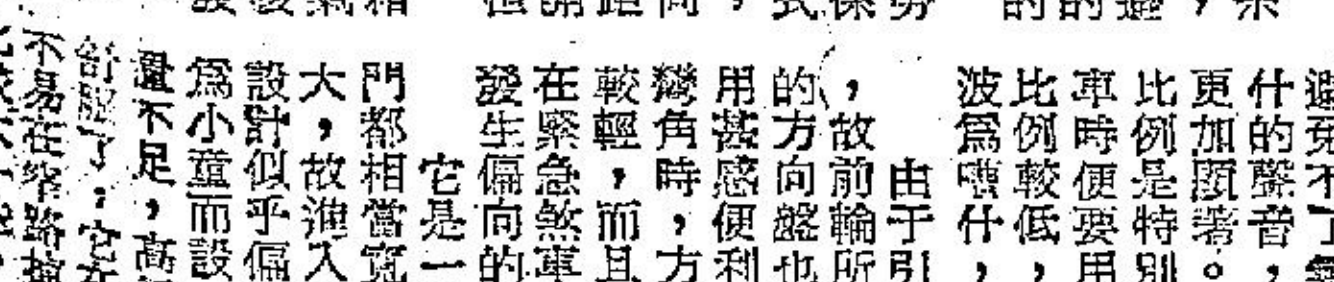 避免不了無
什的聲音，
更加顯著。
比例是特別
車時便要用
比例較低，
波爲嘈什，
由于引
，故前輪所
的方向盤也
用甚感便利
彎角時，方
較輕，而且
在緊急煞車
發生偏向的
它是一
門都相當寬
大，故進入
設計似乎偏
爲小童而設
量不足，高
舒服了；它在
不易在窄路